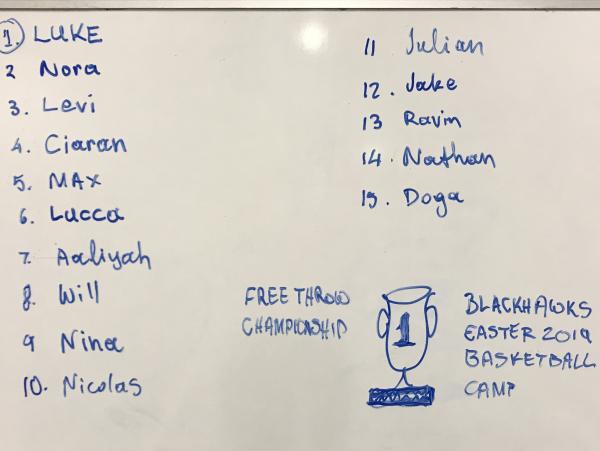 1. LUKE
2 Nora
3. Levi
4. Ciaran
5. MAX
6. Lucca
7. Aaliyah
8. Will
9 Nina
10. Nicolas
11 Julian
12. Jake
13 Ravin
14. Nathan
15. Doga
FREE THROW
CHAMPIONSHIP
1
BLACKHAWKS
EASTER 2019
BASKETBALL
CAMP